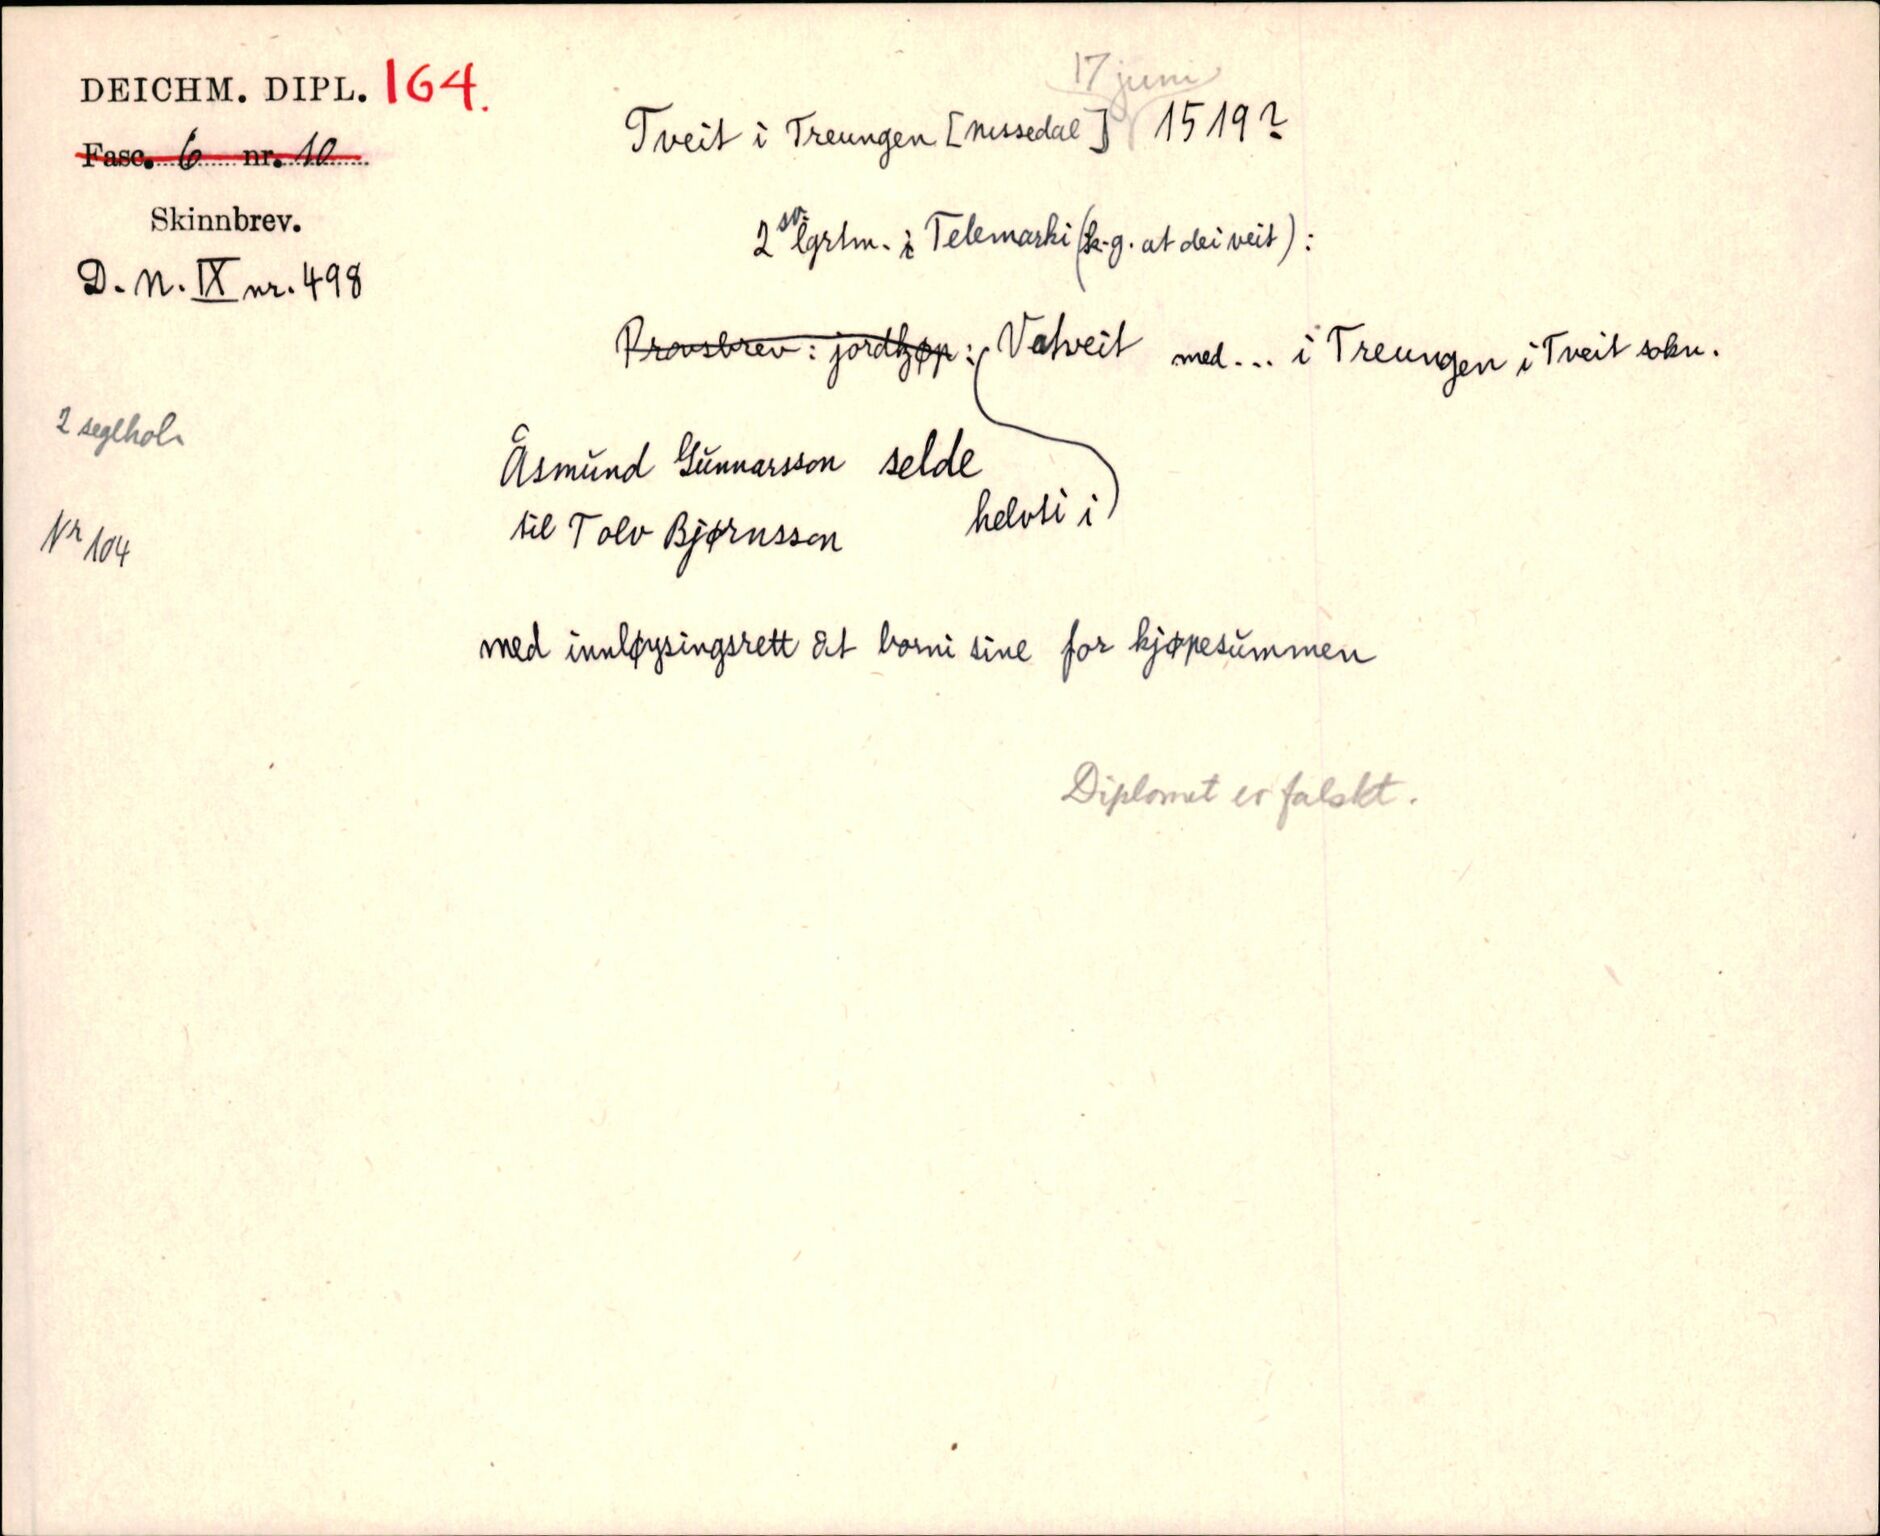 DEICHM. DIPL. 164.
Fasc. 6 nr. 10
Skinnbrev.
D. N. IX nr. 498
2 seglhol.
Nr 104
17 juni
Tveit i Treungen [Nissedal] 1519?
2 sv. lgrtm. i Telemarki (k-g. at dei veit):
Provsbrev: jordkjøp: Vatveit med... i Treungen i Tveit sokn.
Åsmund Gunnarsson selde
til Tolv Bjørnsson helvti i
med innløysingsrett åt borni sine for kjøpesummen
Diplomet er falskt.